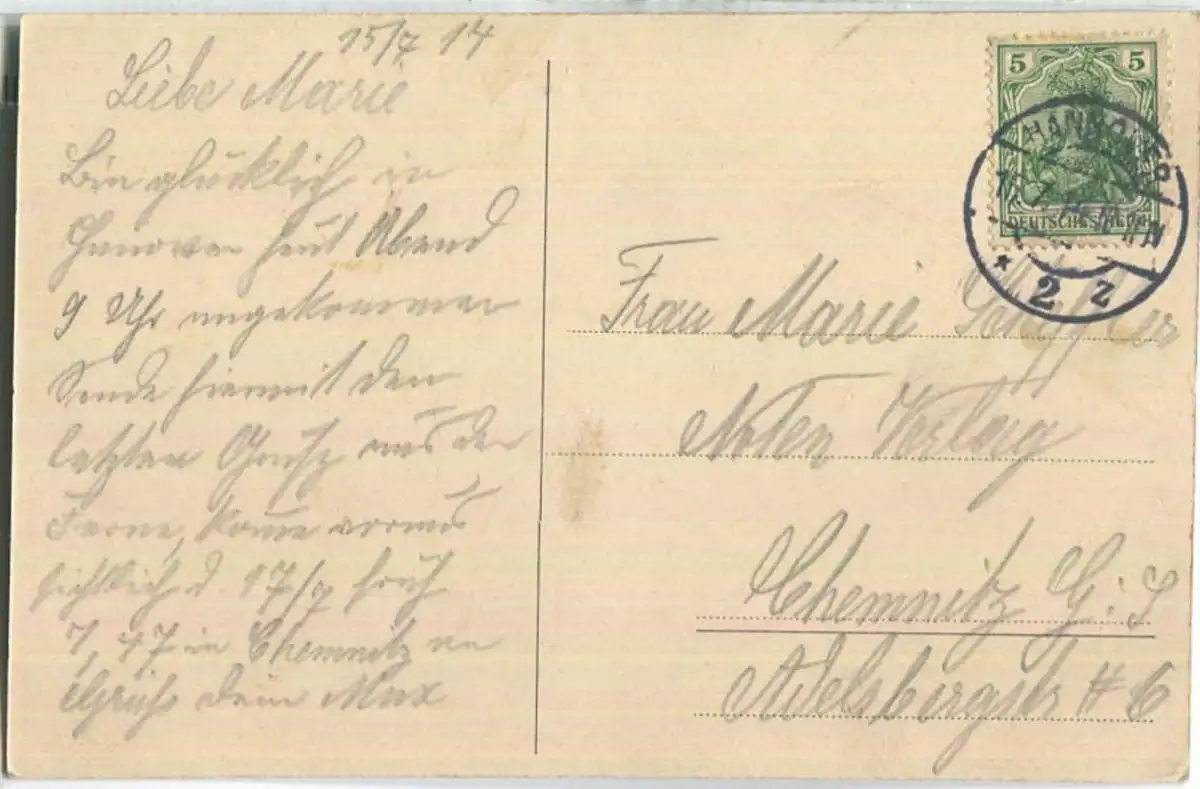 15/7 14
Liebe Marie
Bin glücklich in
Hanower heut Abend
9 Uhr angekommen
Sende hiermit den
letzten Gruß aus der
Ferne, komme voraus
sichtlich d. 17/7 früh
7,47 in Chemnitz an
Gruß dein Max
5 5
HANNOVER
DEUTSCHES REICH
* 2 Z
Frau Marie
Noten Verlag
Chemnitz G: S
Adelsbergstr # 6